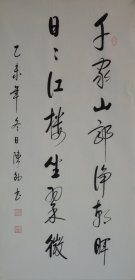 千家山郭净朝晖
日〻江楼坐翠微
乙未年冬日陈
书